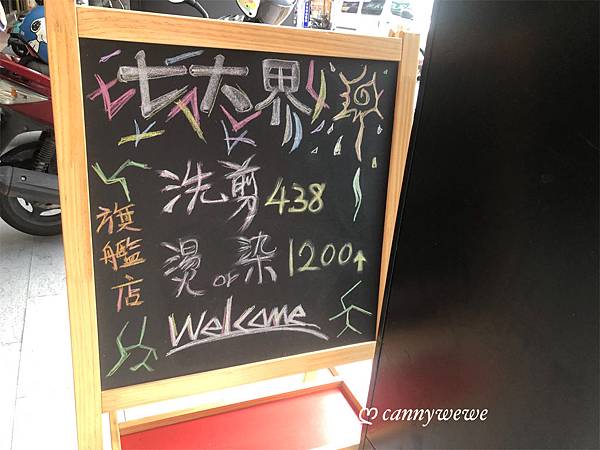 七大界
旗艦店
洗剪 438
燙 or 染 1200↑
Welcome
ღ cannywewe